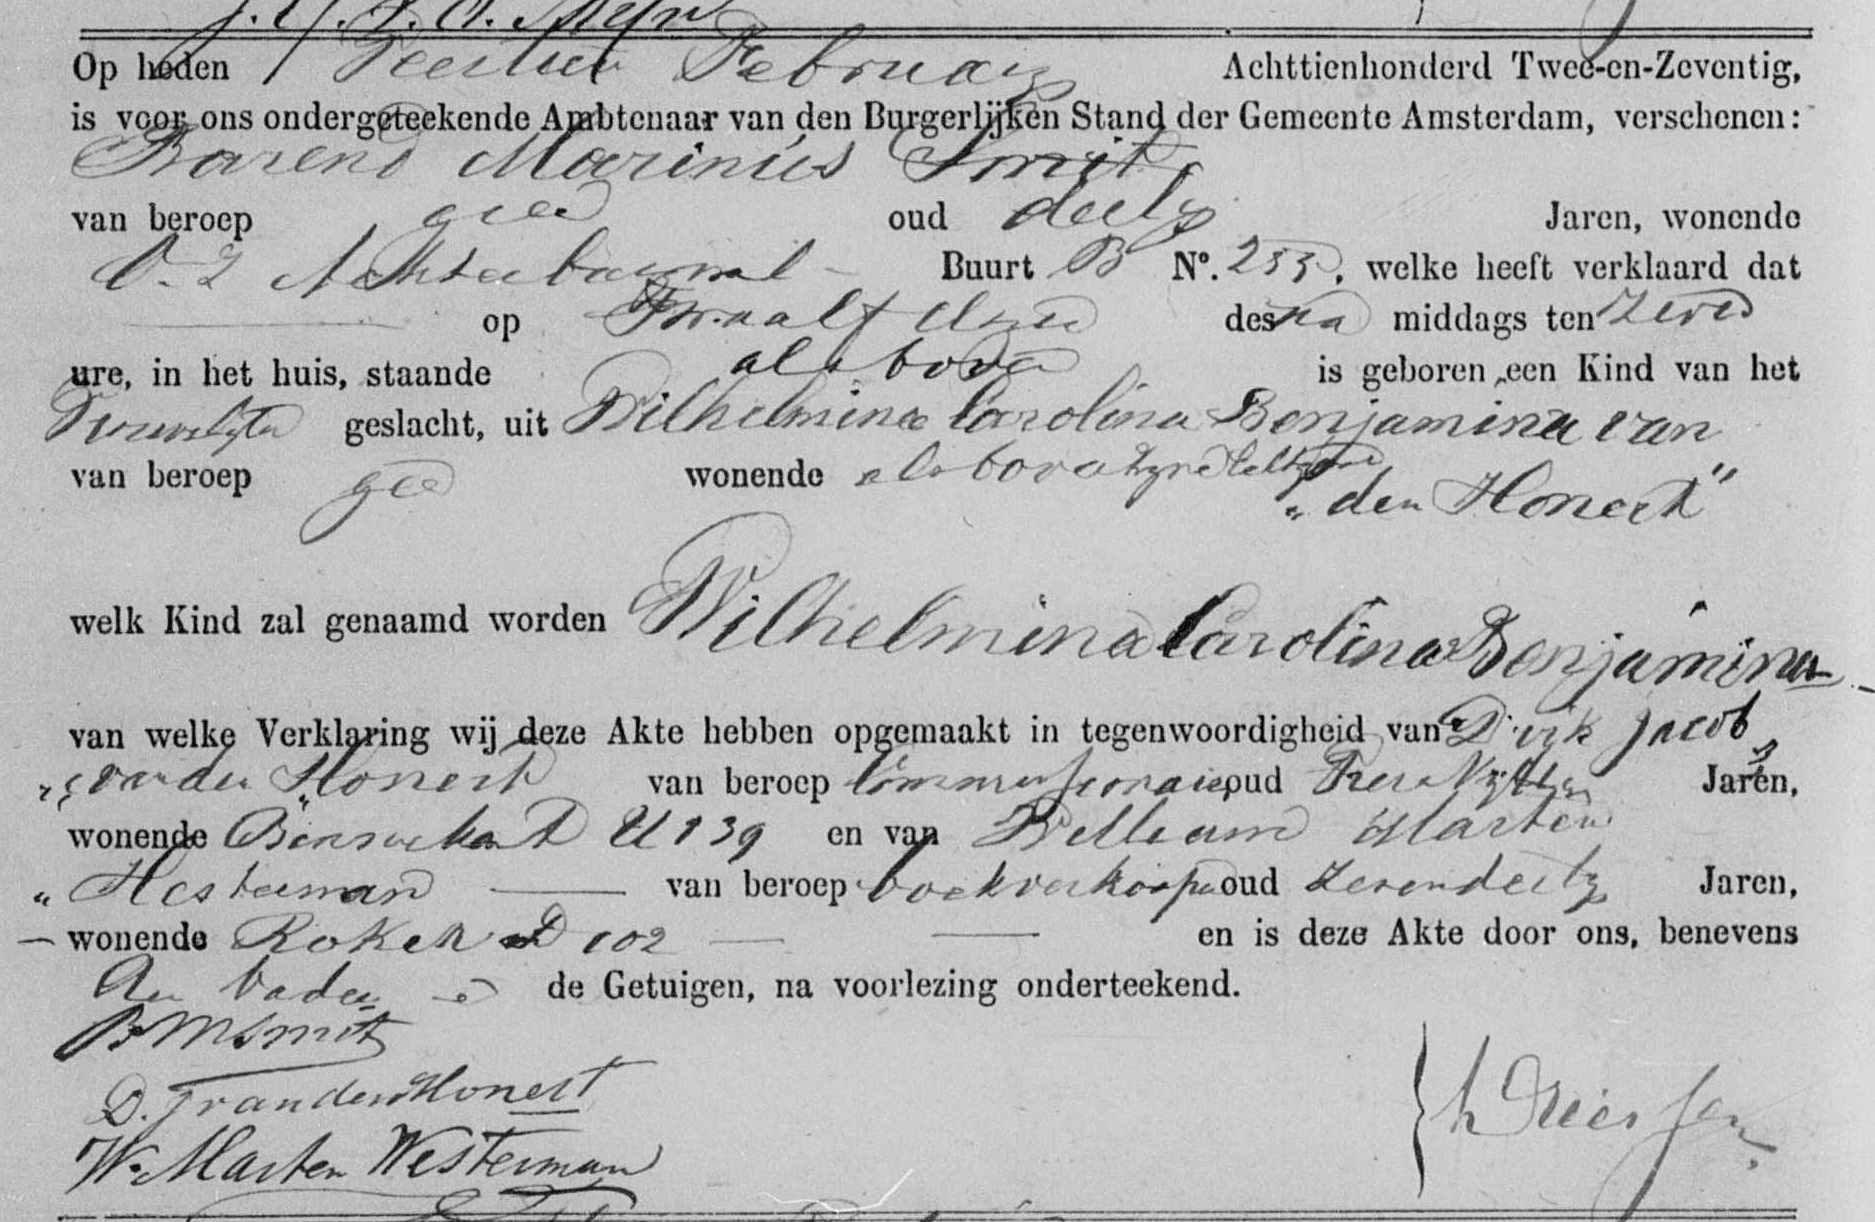 Op heden Veertien Februarij Achttienhonderd Twee-en-Zeventig,
is voor ons ondergeteekende Ambtenaar van den Burgerlijken Stand der Gemeente Amsterdam, verschenen:
Barend Marinus Smit,
van beroep geen oud dertig Jaren, wonende
O. Z Achterburgwal Buurt B Nº. 255, welke heeft verklaard dat
op Twaalf dezer des na middags ten zeven
ure, in het huis, staande als boven is geboren een Kind van het
Vrouwelijke geslacht, uit Wilhelmina Carolina Benjamina van
van beroep geen wonende als boven zijne Echtgenoote
„den Honert"
welk Kind zal genaamd worden Wilhelmina Carolina Benjamina
van welke Verklaring wij deze Akte hebben opgemaakt in tegenwoordigheid van Dirk Jacob
van den Honert van beroep Commissionair oud Jaren,
wonende Binnenkant U 139 en van Willem Marten
Westerman van beroep boekverkooper oud zevendertig Jaren,
wonende Rokin D 102 en is deze Akte door ons, benevens
den Vader en de Getuigen, na voorlezing onderteekend.
B M Smit
D. J van den Honert
W. Marten Westerman